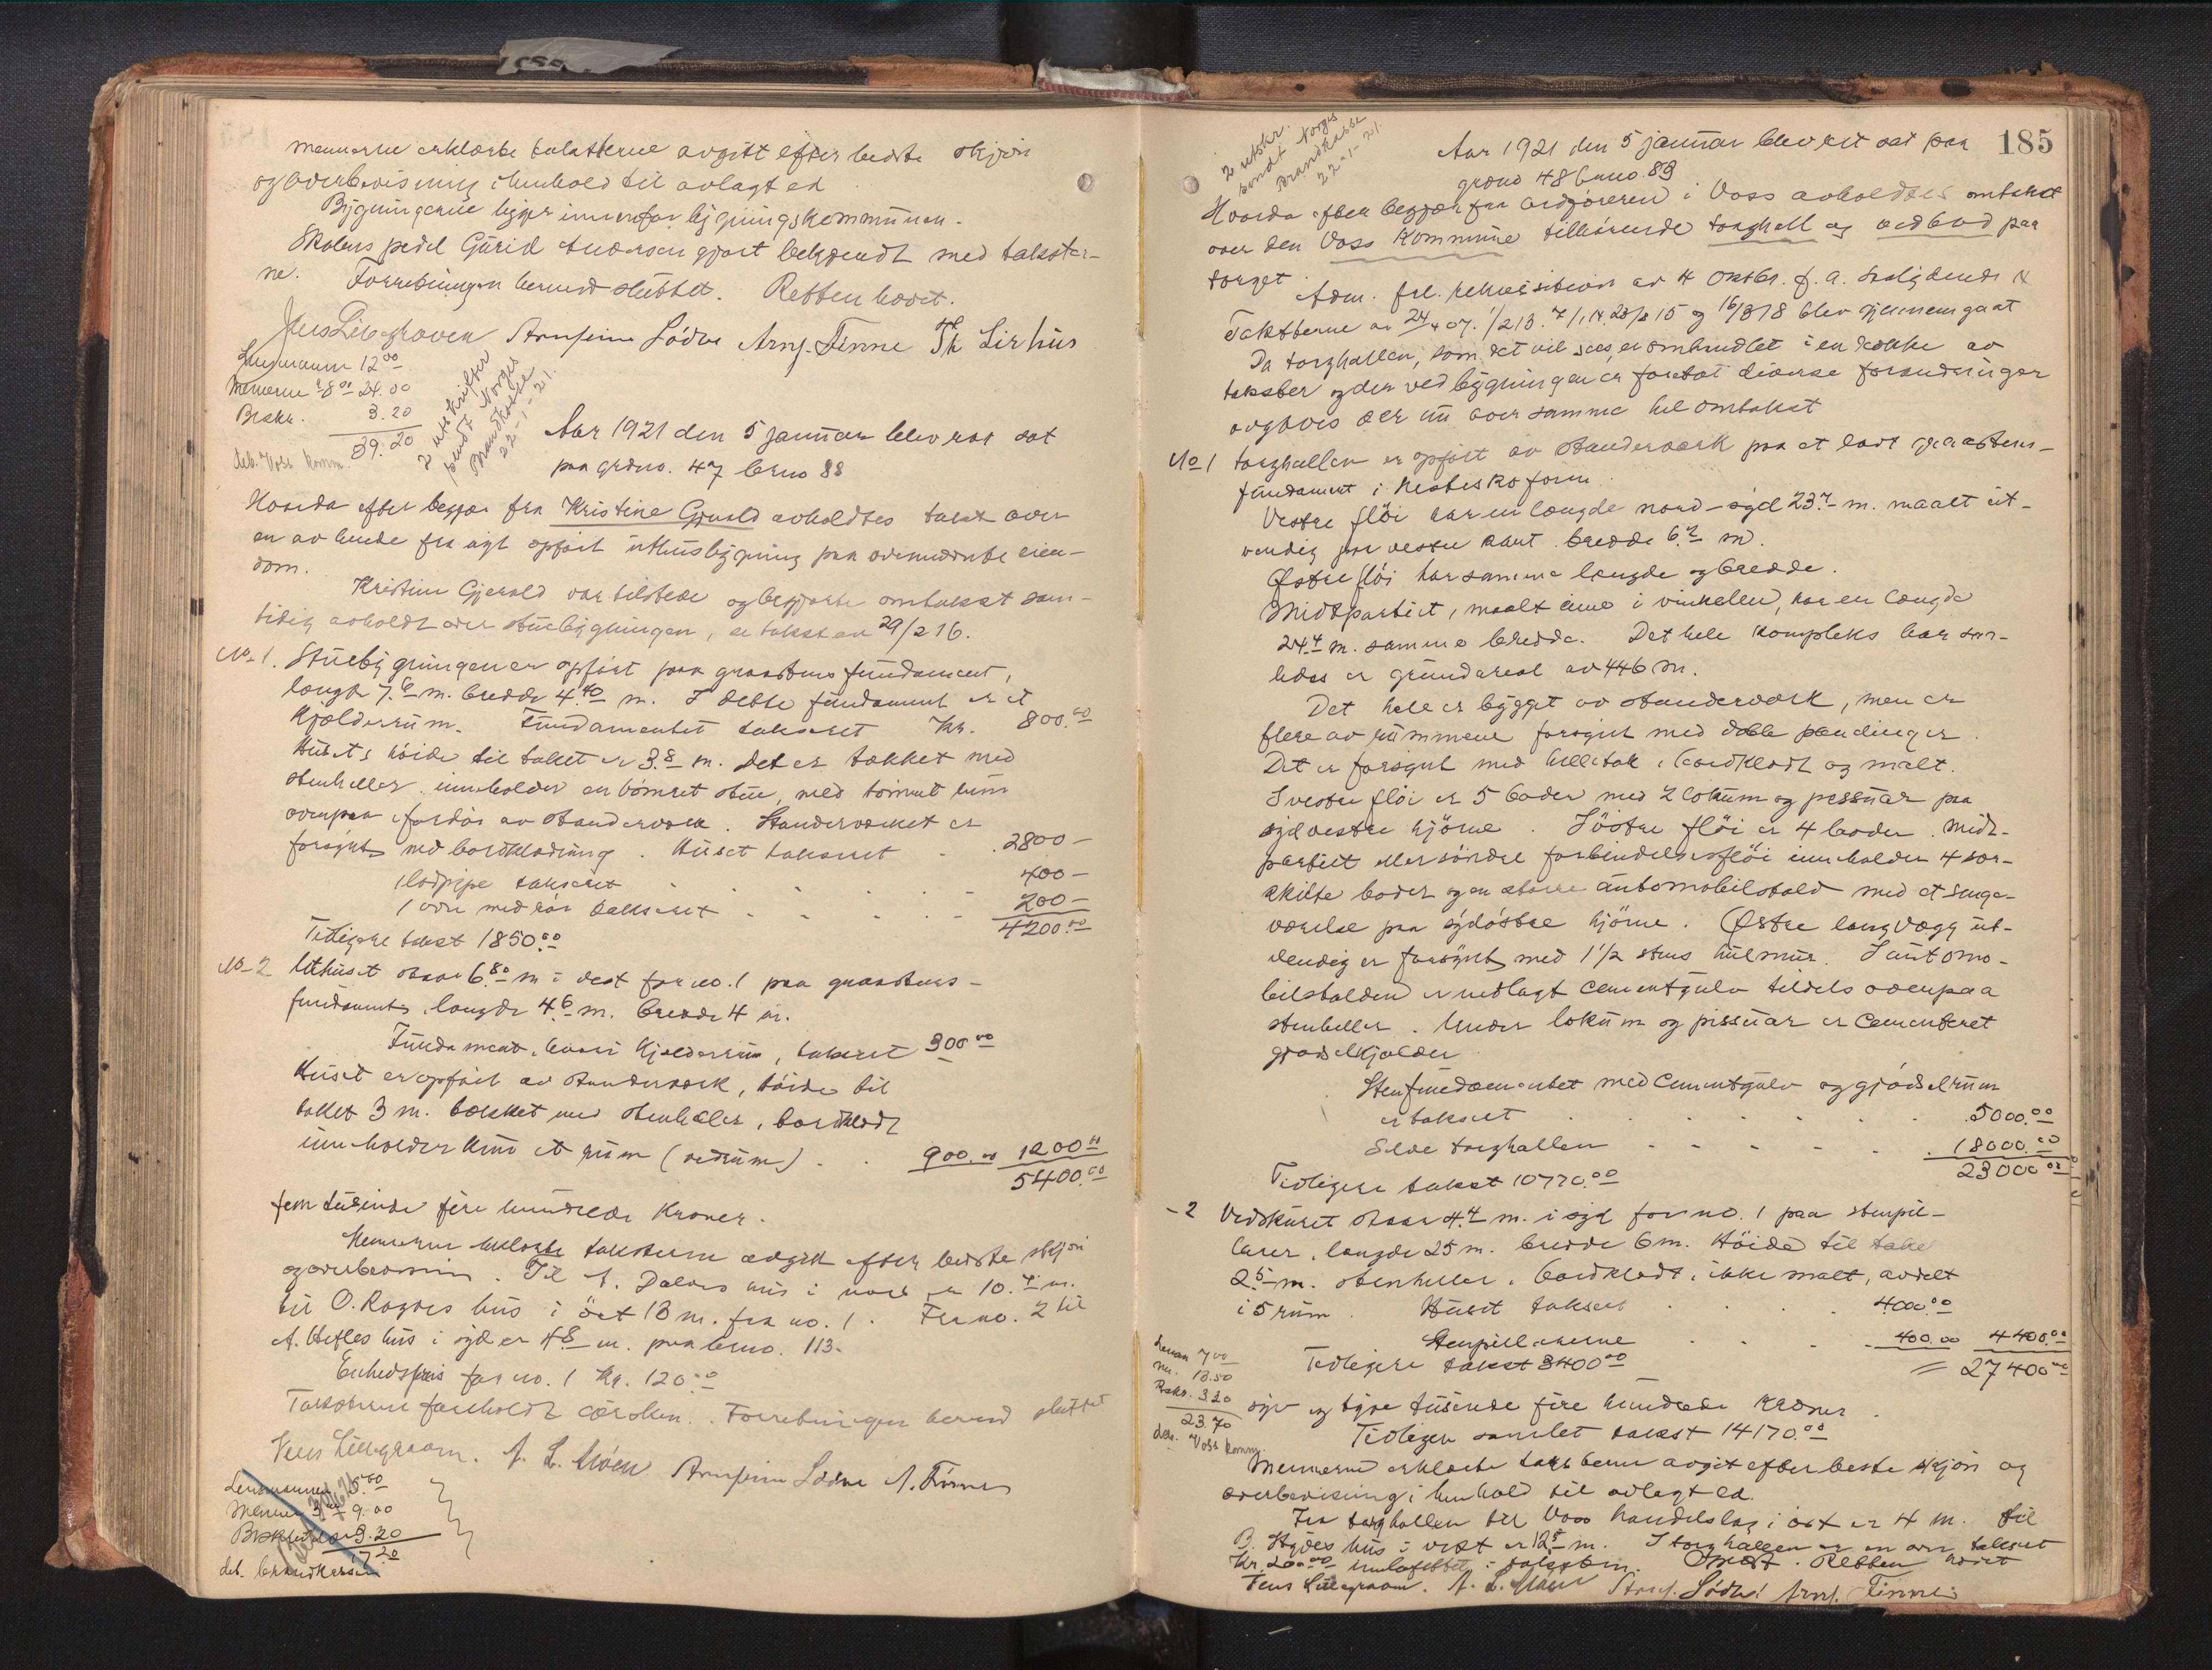 mennerne erklærte taksterne avgitt efter bedste skjøn
og overbevisning i henhold til avlagt ed
Bygningerne ligger innenfor bygningskommunen.
Skolens pedel Gurid Andersen gjort bekjendt med takster-
ne. Forretningen hermed sluttet. Retten hævet.
Jens Lillegraven Arnfinn Lödve Arnf. Finne Th Lirhus
Lensmannen 12 00
Mennerne á 8 00 24.00
Brskr. 3.20
39.20
deb. Voss komm.
2 utskrifter
sendt Norges
Brandkasse
22-1-21.
Aar 1921 den 5 januar blev ret sat
paa grdno. 47 brno 88
Hvorda efter begjær fra Kristine Gjerald avholdtes takst over
en av hende fra nyt opført uthusbygning paa ovennævnte eien-
dom.
Kristine Gjerald var tilstede og begjærte omtakst sam-
tidig avholdt over stuebygningen, se takst av 29/2 16.
No 1. Stuebygningen er opført paa graastens fundament,
længde 7.6 m. bredde 4.40 m. I dette fundament er et
kjælderrum. Fundamentet taksert Kr. 800.00
Husets höide til taket er 3.8 m. det er tækket med
stenheller. inneholder en tömret stue, med tömret rum
ovenpaa, fordør av standerværk. Standerværket er
forsynt med bordklædning. Huset taksert - 2800 -
1 lodpipe taksert - - - - 400 -
1 ovn med rör taksert - - - - 200 -
Tidligere takst 1850.00 4200.00
No 2 Uthuset staar 6.80 m i vest for no. 1 paa graastens-
fundament, længde 4.6 m. bredde 4 m.
Fundament, hvori kjælderrum, taksert 300 00
Huset er opført av standerværk, höide til
taket 3 m. tækket med stenheller, bordklædt
inneholder kun et rum (vedrum) . . 900.00 1200 00
5400.00
fem tusinde fire hundrede kroner.
Mennerne erklærte taksterne avgitt efter bedste skjön
og overbevisning. Til A. Dalves hus i nord er 10.4 m.
til O. Rognes hus i öst 13 m. fra no. 1. Fra no. 2 til
A. Utfles hus i syd er 4.8 m. paa brno. 113.
Enhedspris for no. 1 Kr. 120.00
Taksterne foreholdt eieren. Forretningen hermed sluttet
Jens Lillegraven. A. L. Mæen Arnfinn Lödve A. Finne
Lensmannen 5.00
Mennene 3 00 9.00
Brskr. 3.20
17.20
deb. brandkassen
185
2 utskr.
sendt Norges
Brandkasse
22-1-21.
Aar 1921 den 5 januar blev ret sat paa
grdno 48 brno. 89
Hvorda efter begjær fra ordføreren i Voss avholdtes omtakst
over den Voss kommune tilhörende torghall og vedbod paa
torget.
Adm. frl. rekvisition av 4 oktbr. f. a. saalydende N
Taksterne av 24/4 07. 1/2 13. 7/1 14. 23/2 15 og 16/3 18 blev gjennemgaat
Da torghallen, som det vil sees, er omhandlet i en række av
takster og der ved bygningen er foretat diverse forandringer
avgives der nu over samme hel omtakst
No 1 torghallen er opført av standerværk paa et lavt graastens-
fundament i hesteskoform.
Vestre flöi har en længde nord-syd 23.7 m. maalt ut-
vendig paa vestre kant. bredde 6.2 m.
Østre flöi har samme længde og bredde.
Midtpartiet, maalt inne i vinkelen, har en længde
24.4 m. samme bredde. Det hele kompleks har saa-
ledes et grundareal av 446 m.
Det hele er bygget av standerværk, men er
flere av rummene forsynt med doble pandinger.
Det er forsynt med helletak, bordklædt og malt.
I vestre flöi er 5 boder med 2 lokum og pissuar paa
sydvestre hjörne. I östre flöi er 4 boder. Midt-
partiet eller söndre forbindelsesflöi inneholder 4 sær-
skilte boder og en större automobilstald med et senge-
værelse paa sydöstre hjörne. Østre langvæg ut-
vendig er forsynt med 1 1/2 stens hulmur. I automo-
bilstalden er nedlagt cementgulv tildels ovenpaa
stenheller. Under lokum og pissuar er cementeret
gjødselkjælder
Stenfundamentet med cementgulv og gjödselrum
er taksert . . . . . . . 5000.00
Selve torghallen - - - - - . 18000.00
Tidligere takst 10770.00 23000 00
- 2 Vedskuret staar 4.4 m. i syd for no. 1 paa stenpil-
larer, længde 25 m. bredde 6 m. Höide til taket
2.5 m. stenheller, bordklædt, ikke malt, avdelt
i 5 rum. Huset taksert . . . . 4000.00
Stenpillarerne . . . 400.00 4400.00
Tidligere takst 3400 00 = 27400 00
Lensm 7 00
m. 13.50
Rskr. 3.20
23.70
deb. Voss komm.
syv og tyve tusinde fire hundrede kroner.
Tidligere samlet takst 14170.00
Mennerne erklærte taksterne avgit efter beste skjön og
overbevisning i henhold til avlagt ed.
Fra torghallen til Voss handelslag i öst er 4 m. til
B. Hydes hus i vest er 12.5 m. I torghallen er en ovn taksert
Kr. 200.00 innbefattet i taksten. Oplæst. Retten hævet
Jens Lillegraven. A. L. Mæen Arnf. Lödve Arnf. Finne